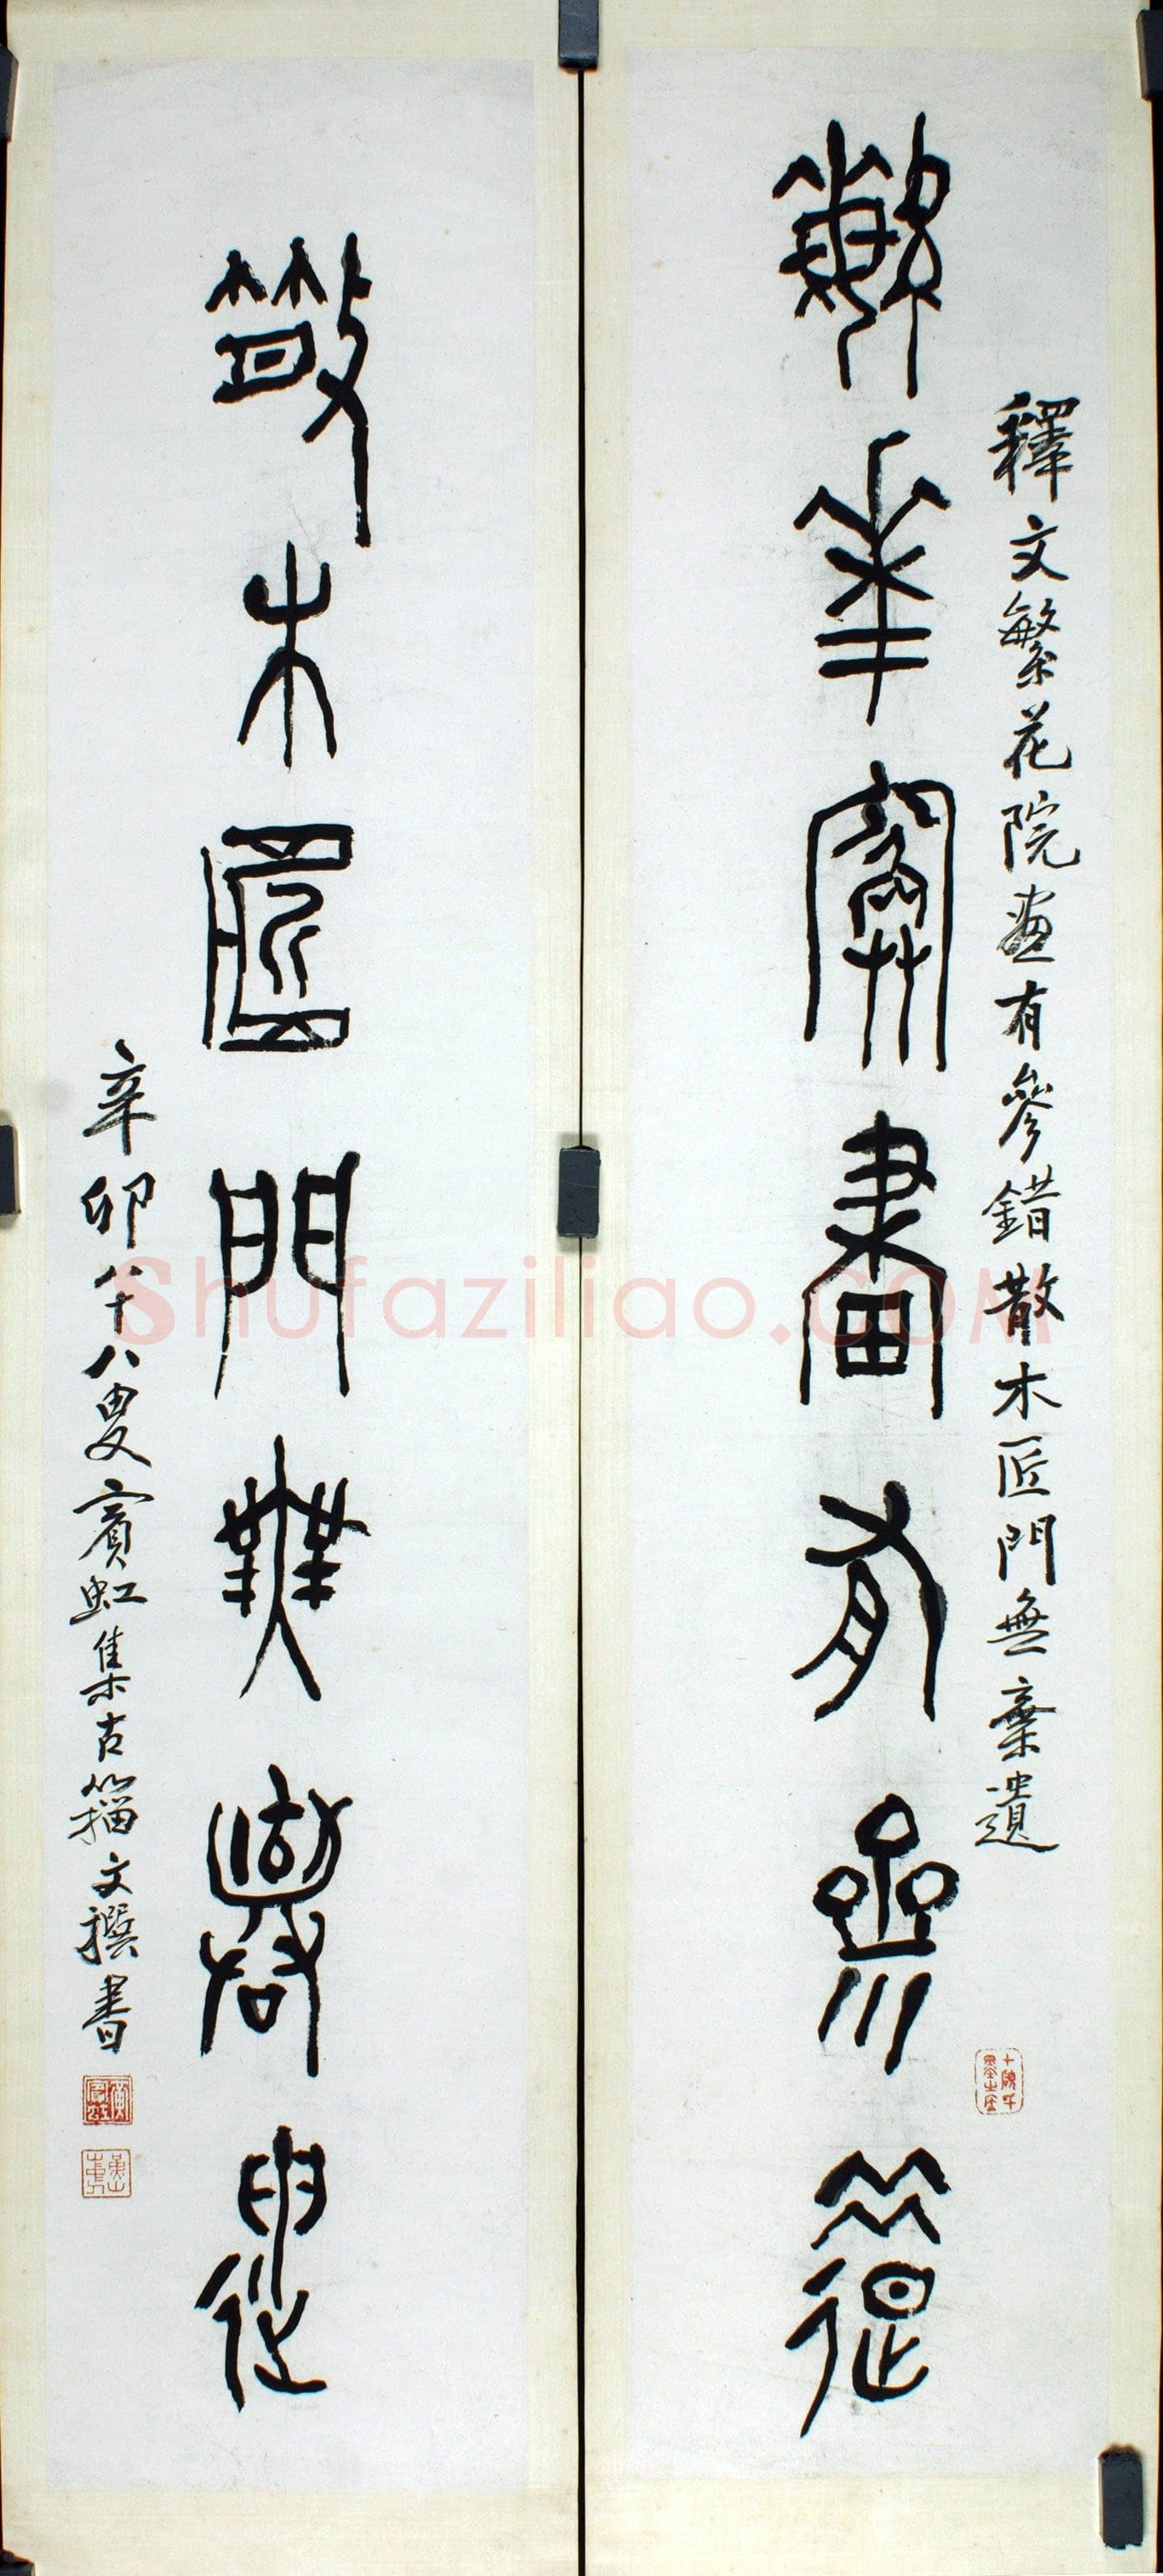 釋文繁花院畫有參錯散木匠門無棄遺
繁華院畫有參錯
散木匠門無棄遺
辛卯八十八叟賓虹集古籀文撰書
黃賓虹
Shufaziliao.COM